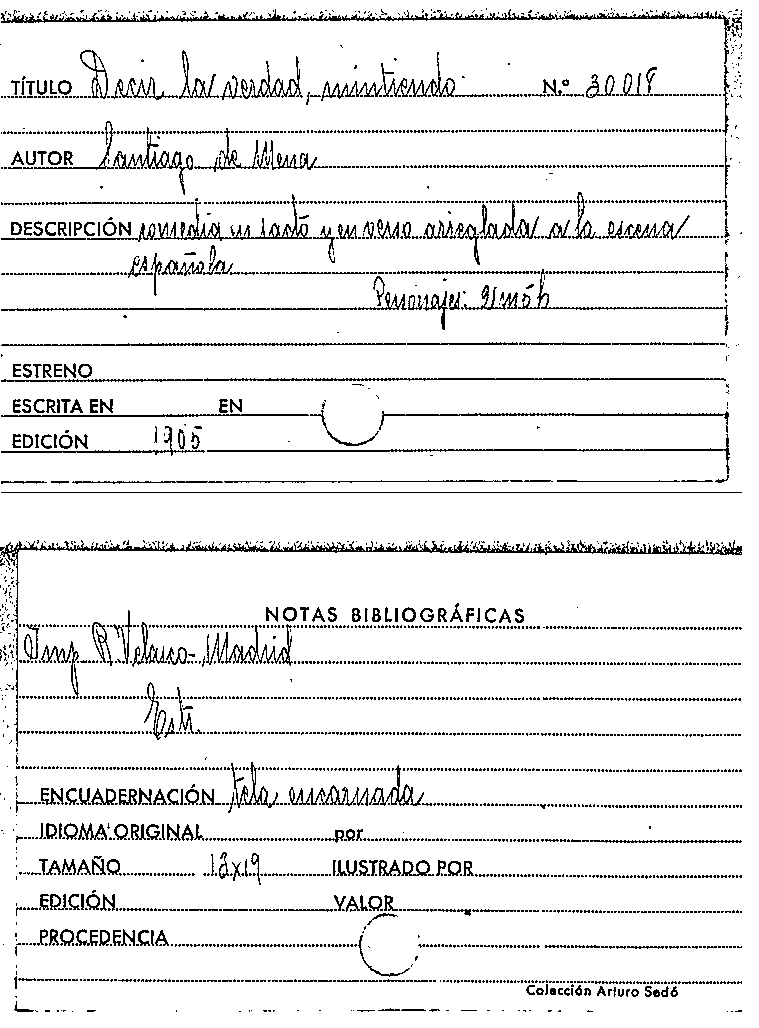 TÍTULO Decir la verdad, mintiendo N.º 30018
AUTOR Santiago de Mena
DESCRIPCIÓN comedia en 1 acto y en verso arreglada a la escena
española
Personajes: 2 m 5 h
ESTRENO
ESCRITA EN EN
EDICIÓN 1905
NOTAS BIBLIOGRÁFICAS
Imp R Velasco - Madrid
Estr.
ENCUADERNACIÓN tela encarnada
IDIOMA ORIGINAL por
TAMAÑO 13x19 ILUSTRADO POR
EDICIÓN VALOR
PROCEDENCIA
Colección Arturo Sedó